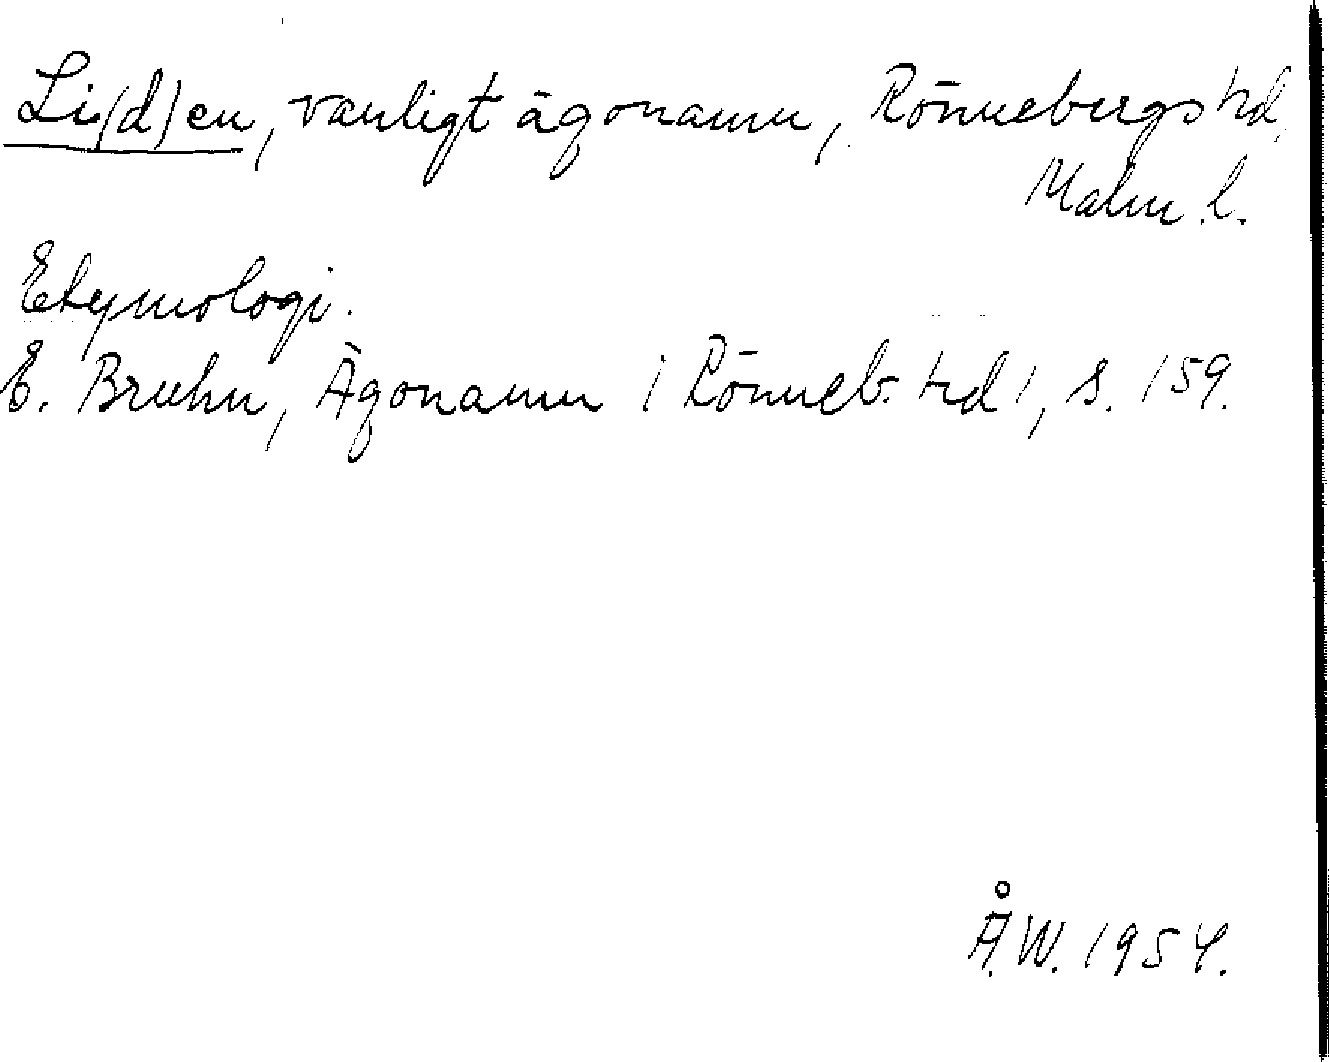 Li(d)en, vanligt ägonamn, Rönnebergs hd,
Malm. l.
Etymologi.
E. Bruhn, Ägonamn i Rönneb. hd!, s. 159.
Å.W. 1954.